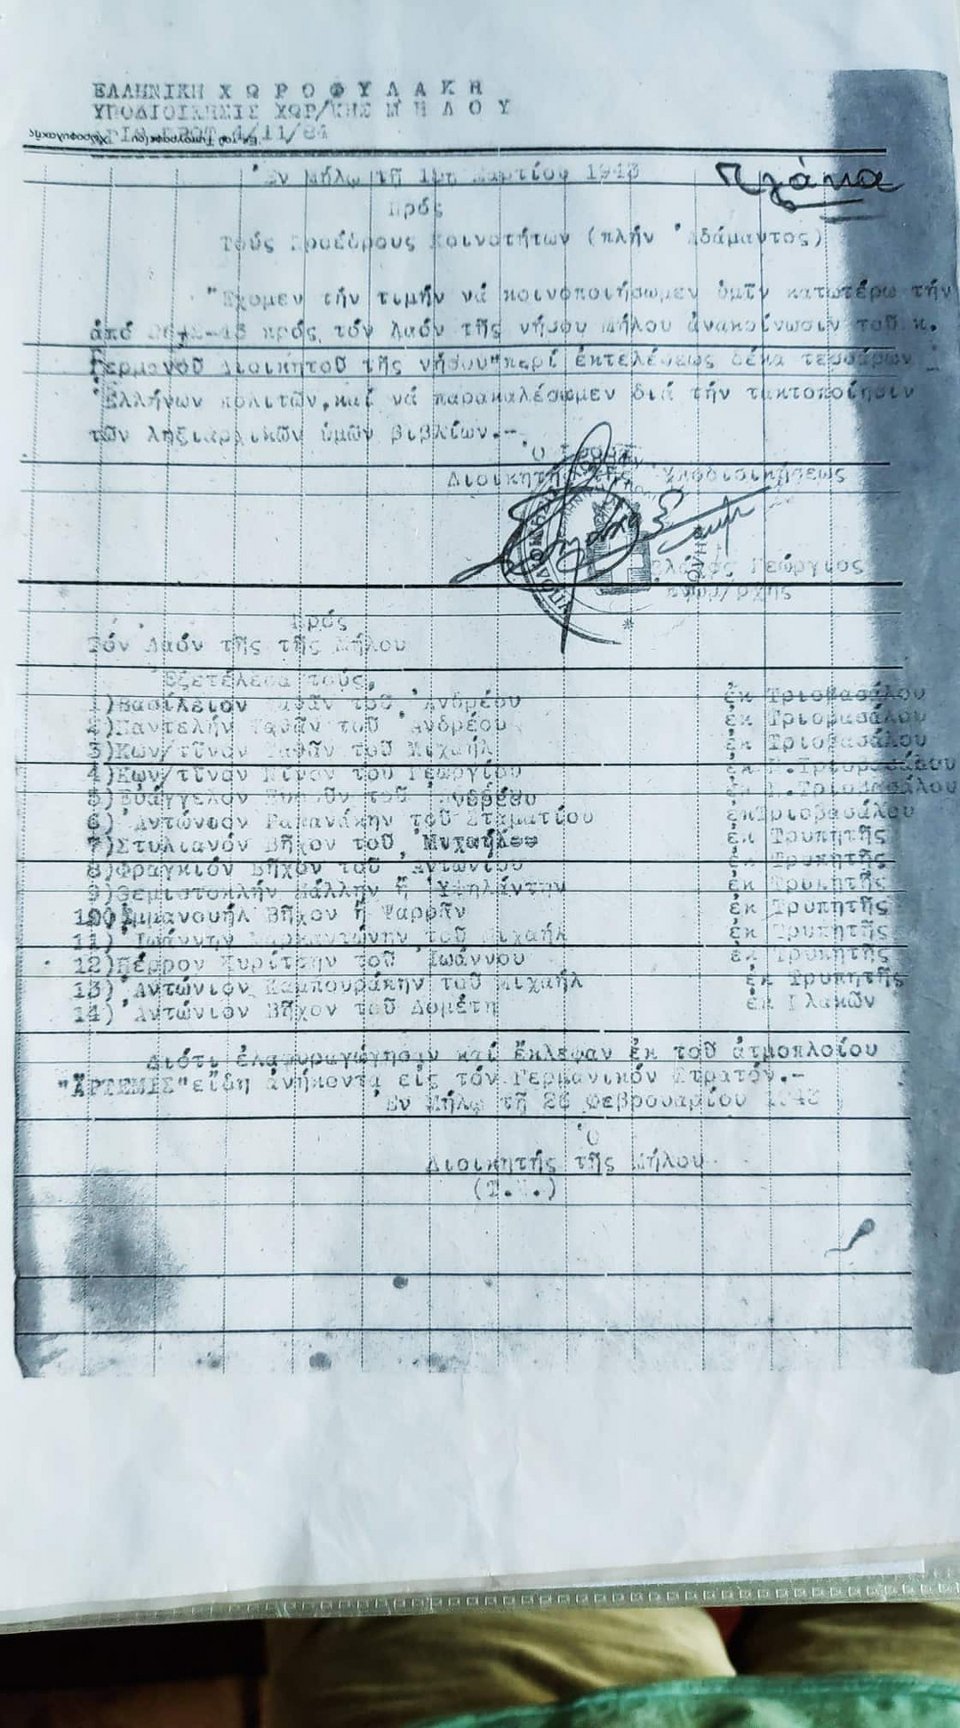 ΕΛΛΗΝΙΚΗ ΧΩΡΟΦΥΛΑΚΗ
ΥΠΟΔΙΟΙΚΗΣΙΣ ΧΩΡ/ΚΗΣ ΜΗΛΟΥ
Ἐν Μήλῳ τῇ 1ῃ Μαρτίου 1943
Πλάκα
Πρός
Τούς Προέδρους Κοινοτήτων (πλήν Ἀδάμαντος)
Ἔχομεν τήν τιμήν νά κοινοποιήσωμεν ὑμῖν κατωτέρω τήν
ἀπό 26-2-43 πρός τόν λαόν τῆς νήσου Μήλου ἀνακοίνωσιν τοῦ κ.
Γερμανοῦ Διοικητοῦ τῆς νήσου"περί ἐκτελέσεως δέκα τεσσάρων
Ἑλλήνων πολιτῶν,καί νά παρακαλέσωμεν διά τήν τακτοποίησιν
τῶν ληξιαρχικῶν ὑμῶν βιβλίων.-
Ὁ
Διοικητής τῆς Ὑποδιοικήσεως
Γεώργιος
Πρός
Τόν Λαόν τῆς τῆς Μήλου
Ἐξετέλεσα τούς,
1)Βασίλειον Ταθᾶν τοῦ Ἀνδρέου ἐκ Τριοβασάλου
2)Παντελήν Ταθᾶν τοῦ Ἀνδρέου ἐκ Τριοβασάλου
3)Κων/τῖνον Ταθᾶν τοῦ Μιχαήλ ἐκ Τριοβασάλου
4)Κων/τῖνον τοῦ Γεωργίου ἐκ Π.Τριοβασάλου
5)Εὐάγγελον τοῦ Ἀνδρέου ἐκ Π.Τριοβασάλου
6)Ἀντώνιον Ραπανάκην τοῦ Σταματίου ἐκΤριοβασάλου
7)Στυλιανόν Βῆχον τοῦ Μιχαήλ ἐκ Τρυπητῆς
8)Φραγκιόν Βῆχον τοῦ Ἀντωνίου ἐκ Τρυπητῆς
9)Θεμιστοκλήν Μάλλην ἤ Ὑψηλάντην ἐκ Τρυπητῆς
10)Ἐμμανουήλ Βῆχον ἤ Ψαρρᾶν ἐκ Τρυπητῆς
11)Ἰωάννην Μαρκαντώνην τοῦ Μιχαήλ ἐκ Τρυπητῆς
12)Πέρρον Κυρίτσην τοῦ Ἰωάννου ἐκ Τρυπητῆς
13)Ἀντώνιον Καμπουράκην τοῦ Μιχαήλ ἐκ Τρυπητῆς
14)Ἀντώνιον Βῆχον τοῦ Δομέτη ἐκ Πλακῶν
Διότι ἐλαφυραγώγησαν καί ἔκλεψαν ἐκ τοῦ ἀτμοπλοίου
"ΑΡΤΕΜΙΣ"εἴδη ἀνήκοντα εἰς τόν Γερμανικόν Στρατόν.-
Ἐν Μήλῳ τῇ 26 Φεβρουαρίου 1943
Ὁ
Διοικητής τῆς Μήλου
(Τ.Υ.)